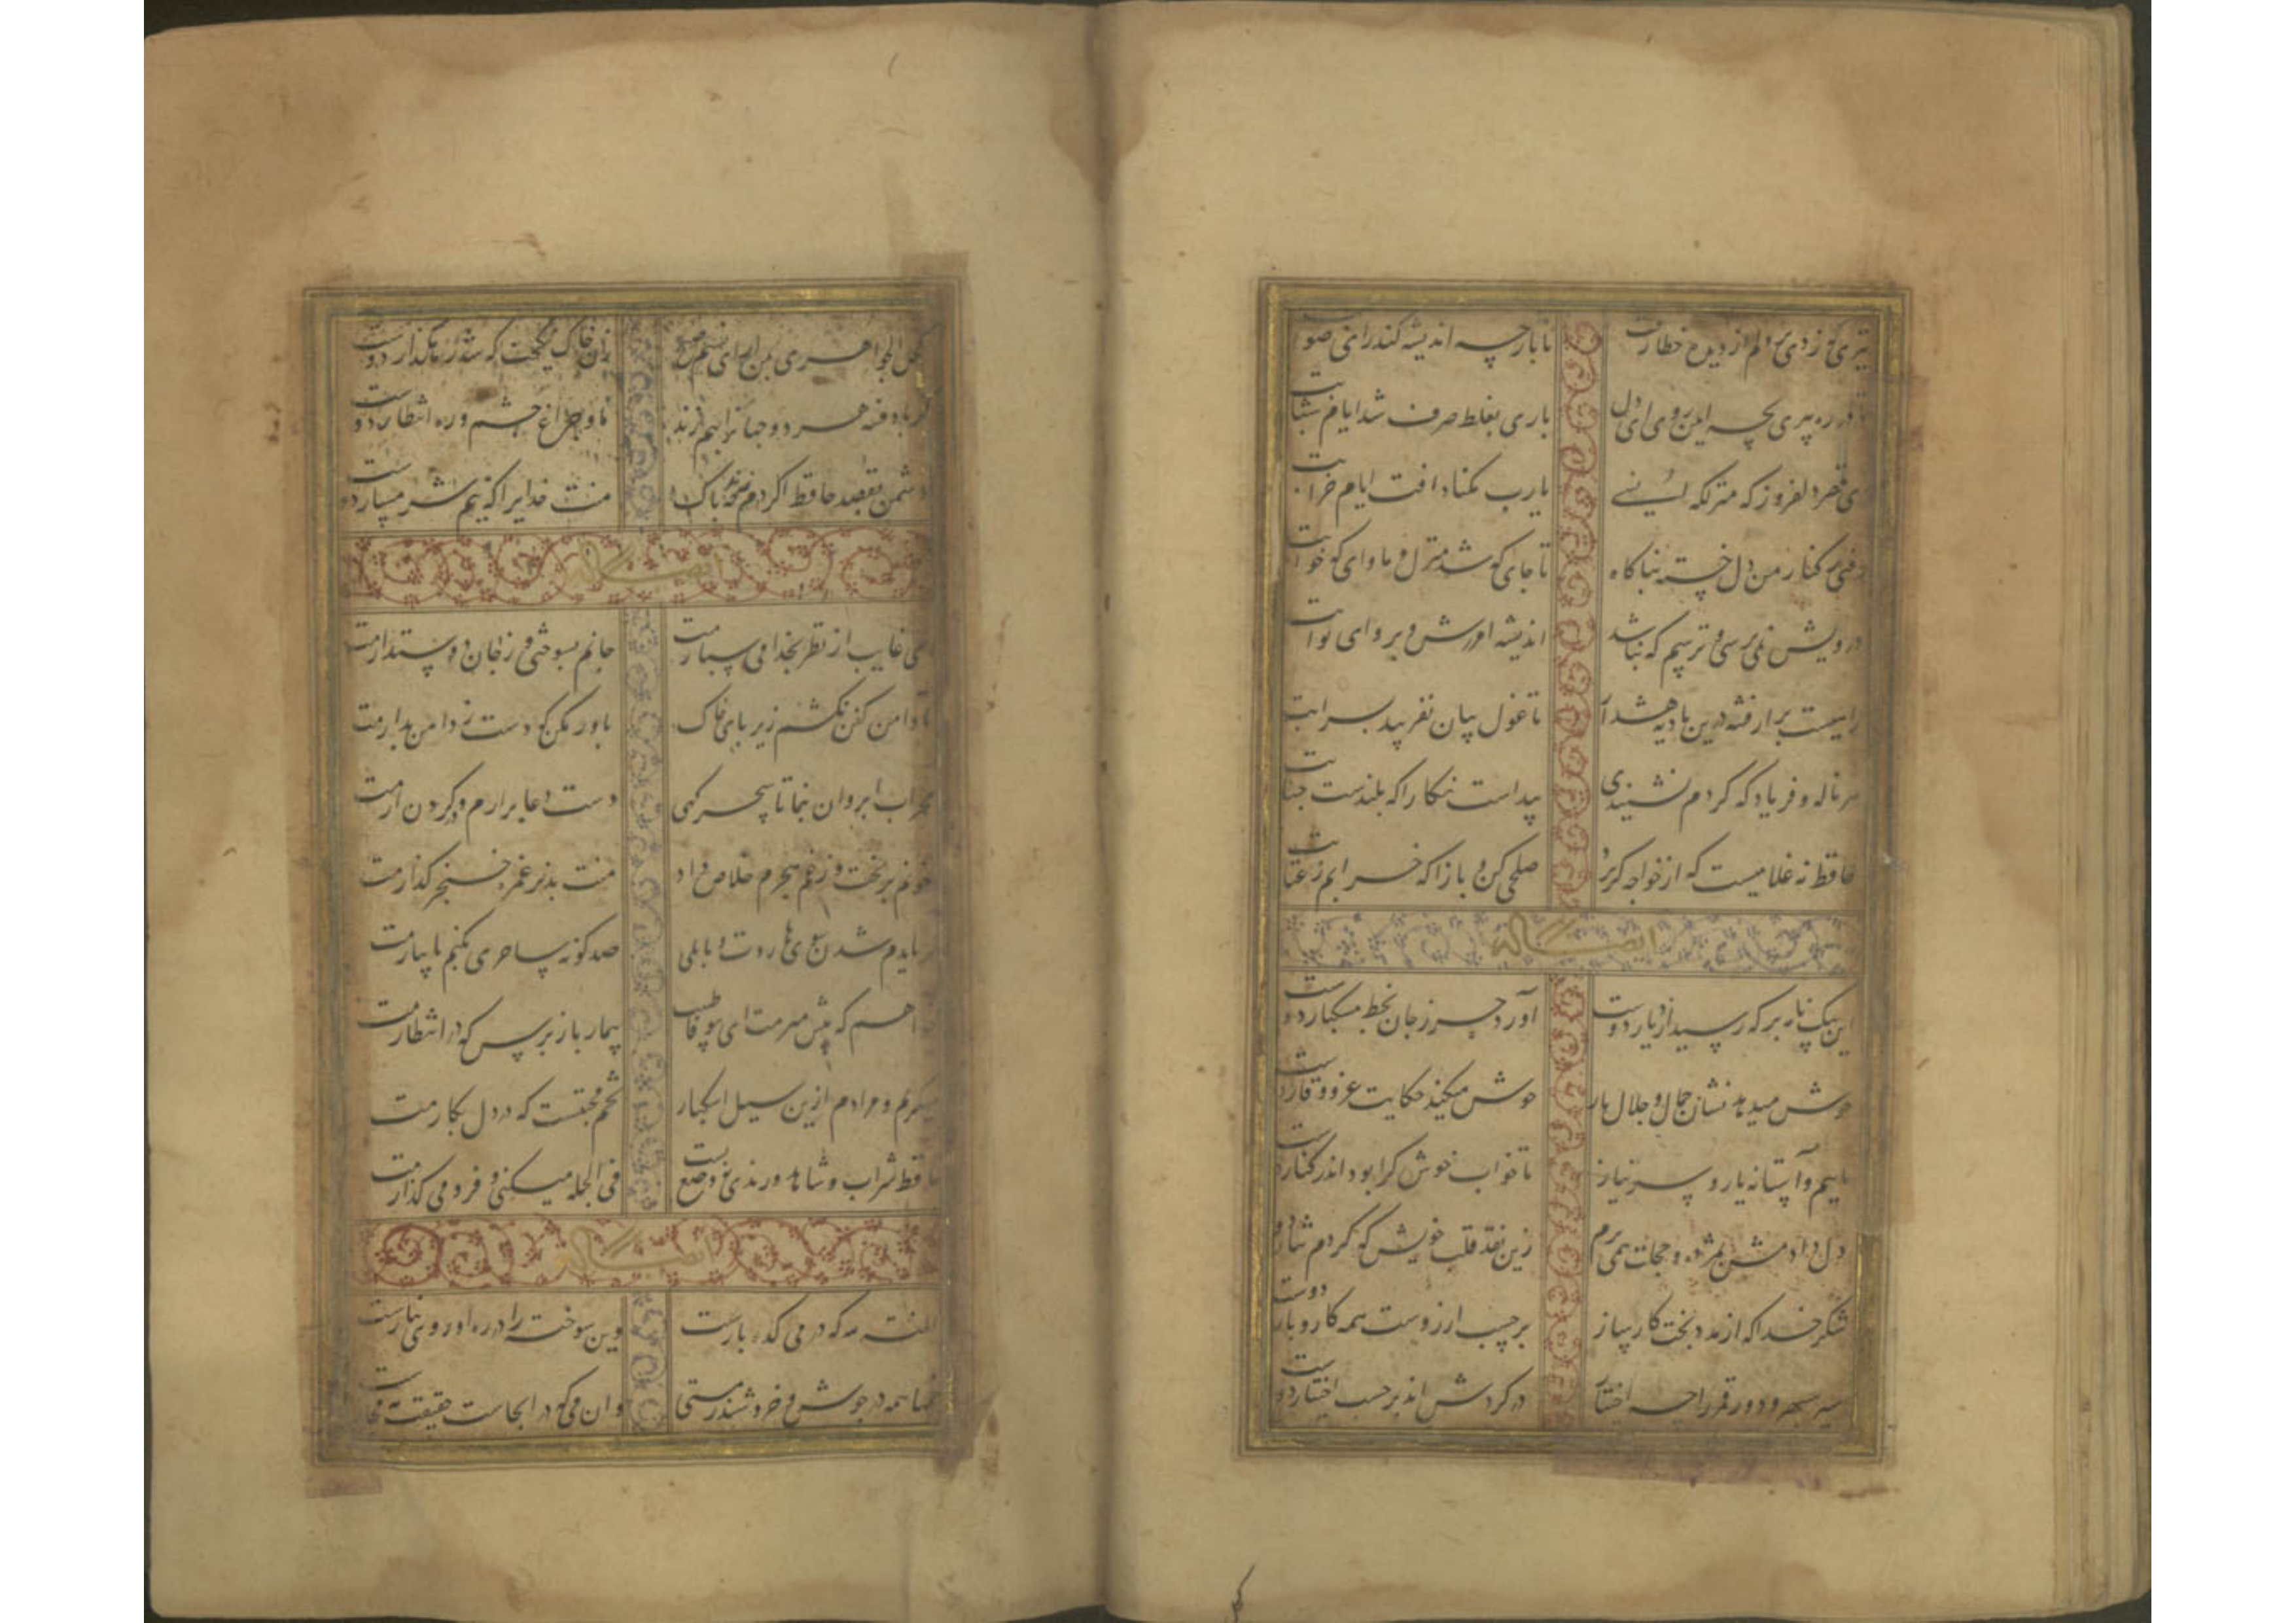 تیری که زدی بر دلم از دیده خطا رفت تا باز چه اندیشه کند رای صوابت
تا در ره پیری بچه این روی ای دل باری بغلط صرف شد ایام شبابت
ای قصر دلفروز که منزلگه انسی یارب مکناد آفت ایام خرابت
رفتی ز کنار من دل خسته بناکاه تا جای که شد منزل و ماوای که خوابت
درویش نمی پرسی و ترسم که نباشد اندیشه آمرزش و پروای ثوابت
راهیست بر از فتنه درین بادیه هشدار تا غول بیابان نفریبد بسرابت
هر ناله و فریاد که کردم نشنیدی پیداست نکارا که بلندست جنابت
حافظ نه غلامیست که از خواجه گریزد صلحی کن و بازا که خرابم ز عتابت
ایضا له
این پیک نامه بر که رسید از دیار دوست آورد حرز جان بخط مشکبار دوست
خوش میدهد نشان جمال و جلال یار خوش میکند حکایت عز و وقار دوست
ماییم و آستانه یار و سر نیاز تا خواب خوش کرا بود اندر کنار دوست
دل دادمش بمژده و خجلت همی برم زین نقد قلب خویش که کردم نثار دوست
شکر خدا که از مدد بخت کارساز بر حسب ارزوست همه کار و بار دوست
سیر سپهر و دور قمر را چه اختیار در کردش اند بر حسب اختیار دوست
کحل الجواهری بمن ار ای نسیم صبح زان خاک نیکبخت که شد رهکذار دوست
کر باد فتنه هر دو جهانرا بهم زند ما و چراغ چشم و ره انتظار دوست
دشمن بقصد حافظ اکر دم زند چه باک منت خدایرا که نیم شرمسار دوست
ایضا له
ای غایب از نظر بخدا می سپارمت جانم بسوختی و ز جان دوستدارمت
تا دامن کفن نکشم زیر پای خاک باور مکن که دست ز دامن بدارمت
محراب ابروان بنما تا سحرکهی دست دعا برارم و در کردن ارمت
خونم بریخت و ز غم هجرم خلاص داد منت پذیر غمزه خنجر کذارمت
کر بایدم شدن سوی هاروت بابلی صد کونه ساحری بکنم تا بیارمت
خواهم که پیش میرمت ای بیوفا طبیب بیمار باز پرس که در انتظارمت
میکریم و مرادم ازین سیل اشکبار تخم محبتست که در دل بکارمت
حافظ شراب و شاهد و رندی نه وضع تست فی الجمله میکنی و فرو می کذارمت
ایضا له
المنته لله که در می کده بازست وین سوخته را در ره او روی نیازست
خمها همه در جوش و خروشند ز مستی وان می که در انجاست حقیقت نه مجازست